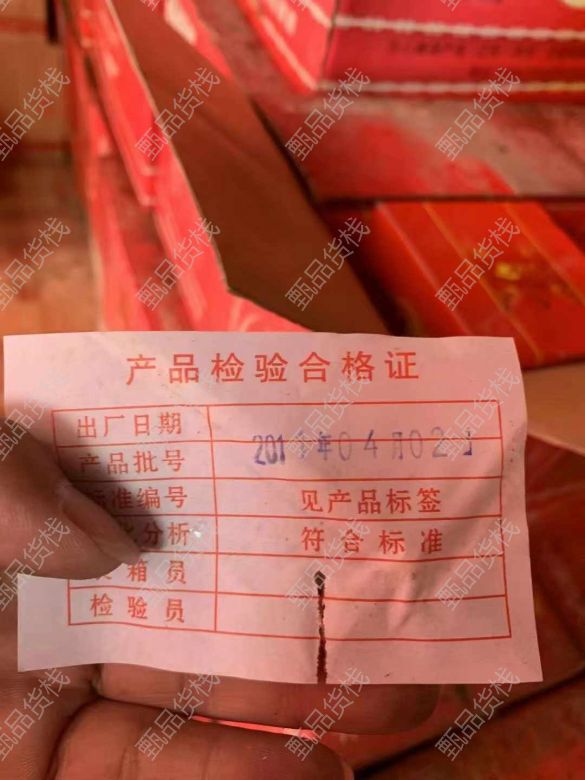 产品检验合格证
出厂日期
产品批号
201 年04月02日
标准编号
见产品标签
分析
符合标准
箱员
检验员
甄品货栈
甄品货栈
甄品货栈
甄品货栈
甄品货栈
甄品货栈
甄品货栈
甄品货栈
甄品货栈
甄品货栈
甄品货栈
甄品货栈
甄品货栈
甄品货栈
甄品货栈
甄品货栈
甄品货栈
甄品货栈
甄品货栈
甄品货栈